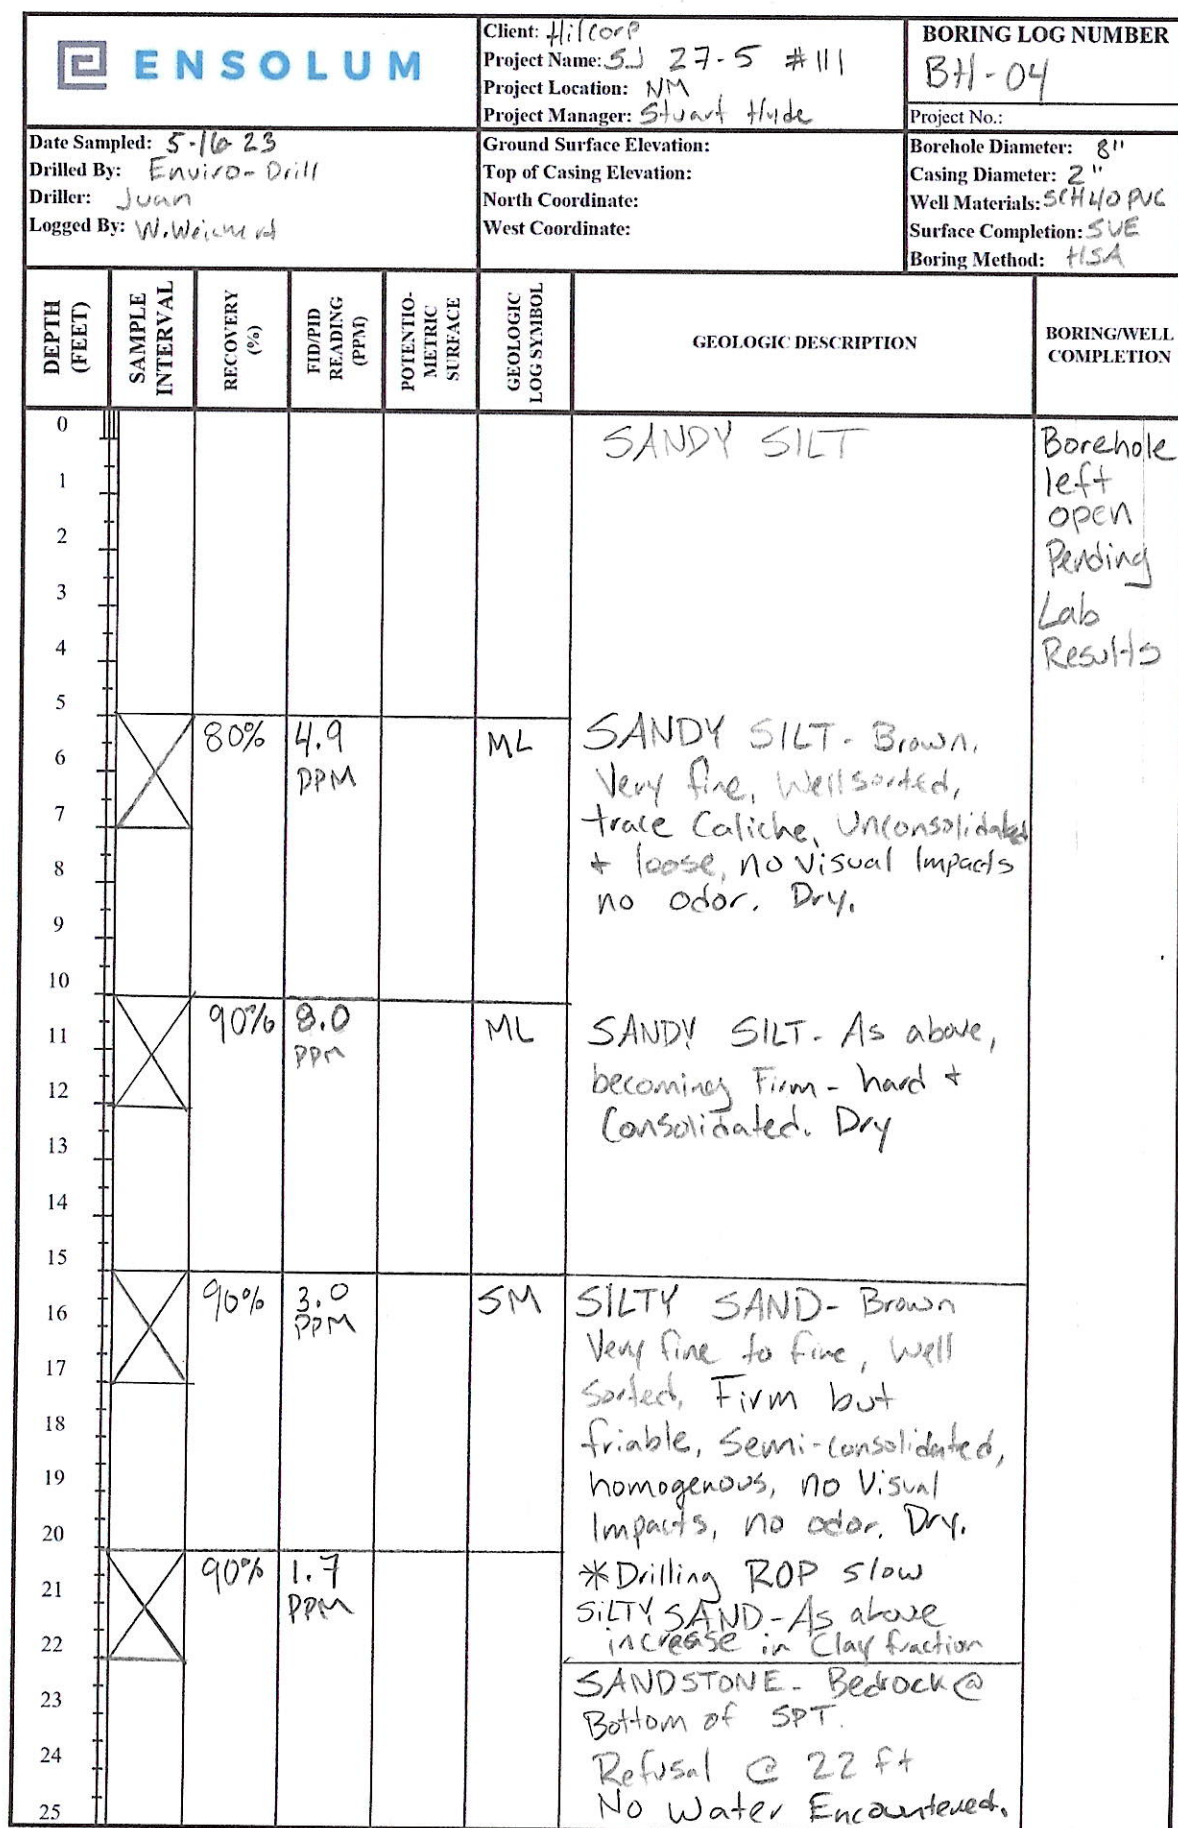 ENSOLUM
Client: Hilcorp
Project Name: SJ 27-5 #111
Project Location: NM
Project Manager: Stuart Hyde
BORING LOG NUMBER
BH-04
Project No.:
Date Sampled: 5-16-23
Drilled By: Enviro-Drill
Driller: Juan
Logged By: W.
Ground Surface Elevation:
Top of Casing Elevation:
North Coordinate:
West Coordinate:
Borehole Diameter: 8"
Casing Diameter: 2"
Well Materials: SCH40 PVC
Surface Completion: SVE
Boring Method: HSA
DEPTH
(FEET)
SAMPLE
INTERVAL
RECOVERY
(%)
FID/PID
READING
(PPM)
POTENTIO-
METRIC
SURFACE
GEOLOGIC
LOG SYMBOL
GEOLOGIC DESCRIPTION
BORING/WELL
COMPLETION
0
SANDY SILT
Borehole
left
open
Pending
Lab
Results
1
2
3
4
5
80%
4.9
PPM
ML
SANDY SILT- Brown,
Very fine, Well sorted,
trace Caliche, Unconsolidated
+ loose, no visual Impacts
no odor. Dry.
6
7
8
9
10
90%
8.0
PPM
ML
SANDY SILT- As above,
becoming Firm - hard +
Consolidated. Dry
11
12
13
14
15
90%
3.0
PPM
SM
SILTY SAND- Brown
Very fine to fine, Well
Sorted, Firm but
friable, Semi-consolidated,
homogenous, no Visual
Impacts, no odor. Dry.
16
17
18
19
20
90%
1.7
PPM
*Drilling ROP slow
SILTY SAND-As above
increase in Clay fraction
21
22
SANDSTONE- Bedrock @
Bottom of SPT.
Refusal @ 22 ft
No Water Encountered.
23
24
25